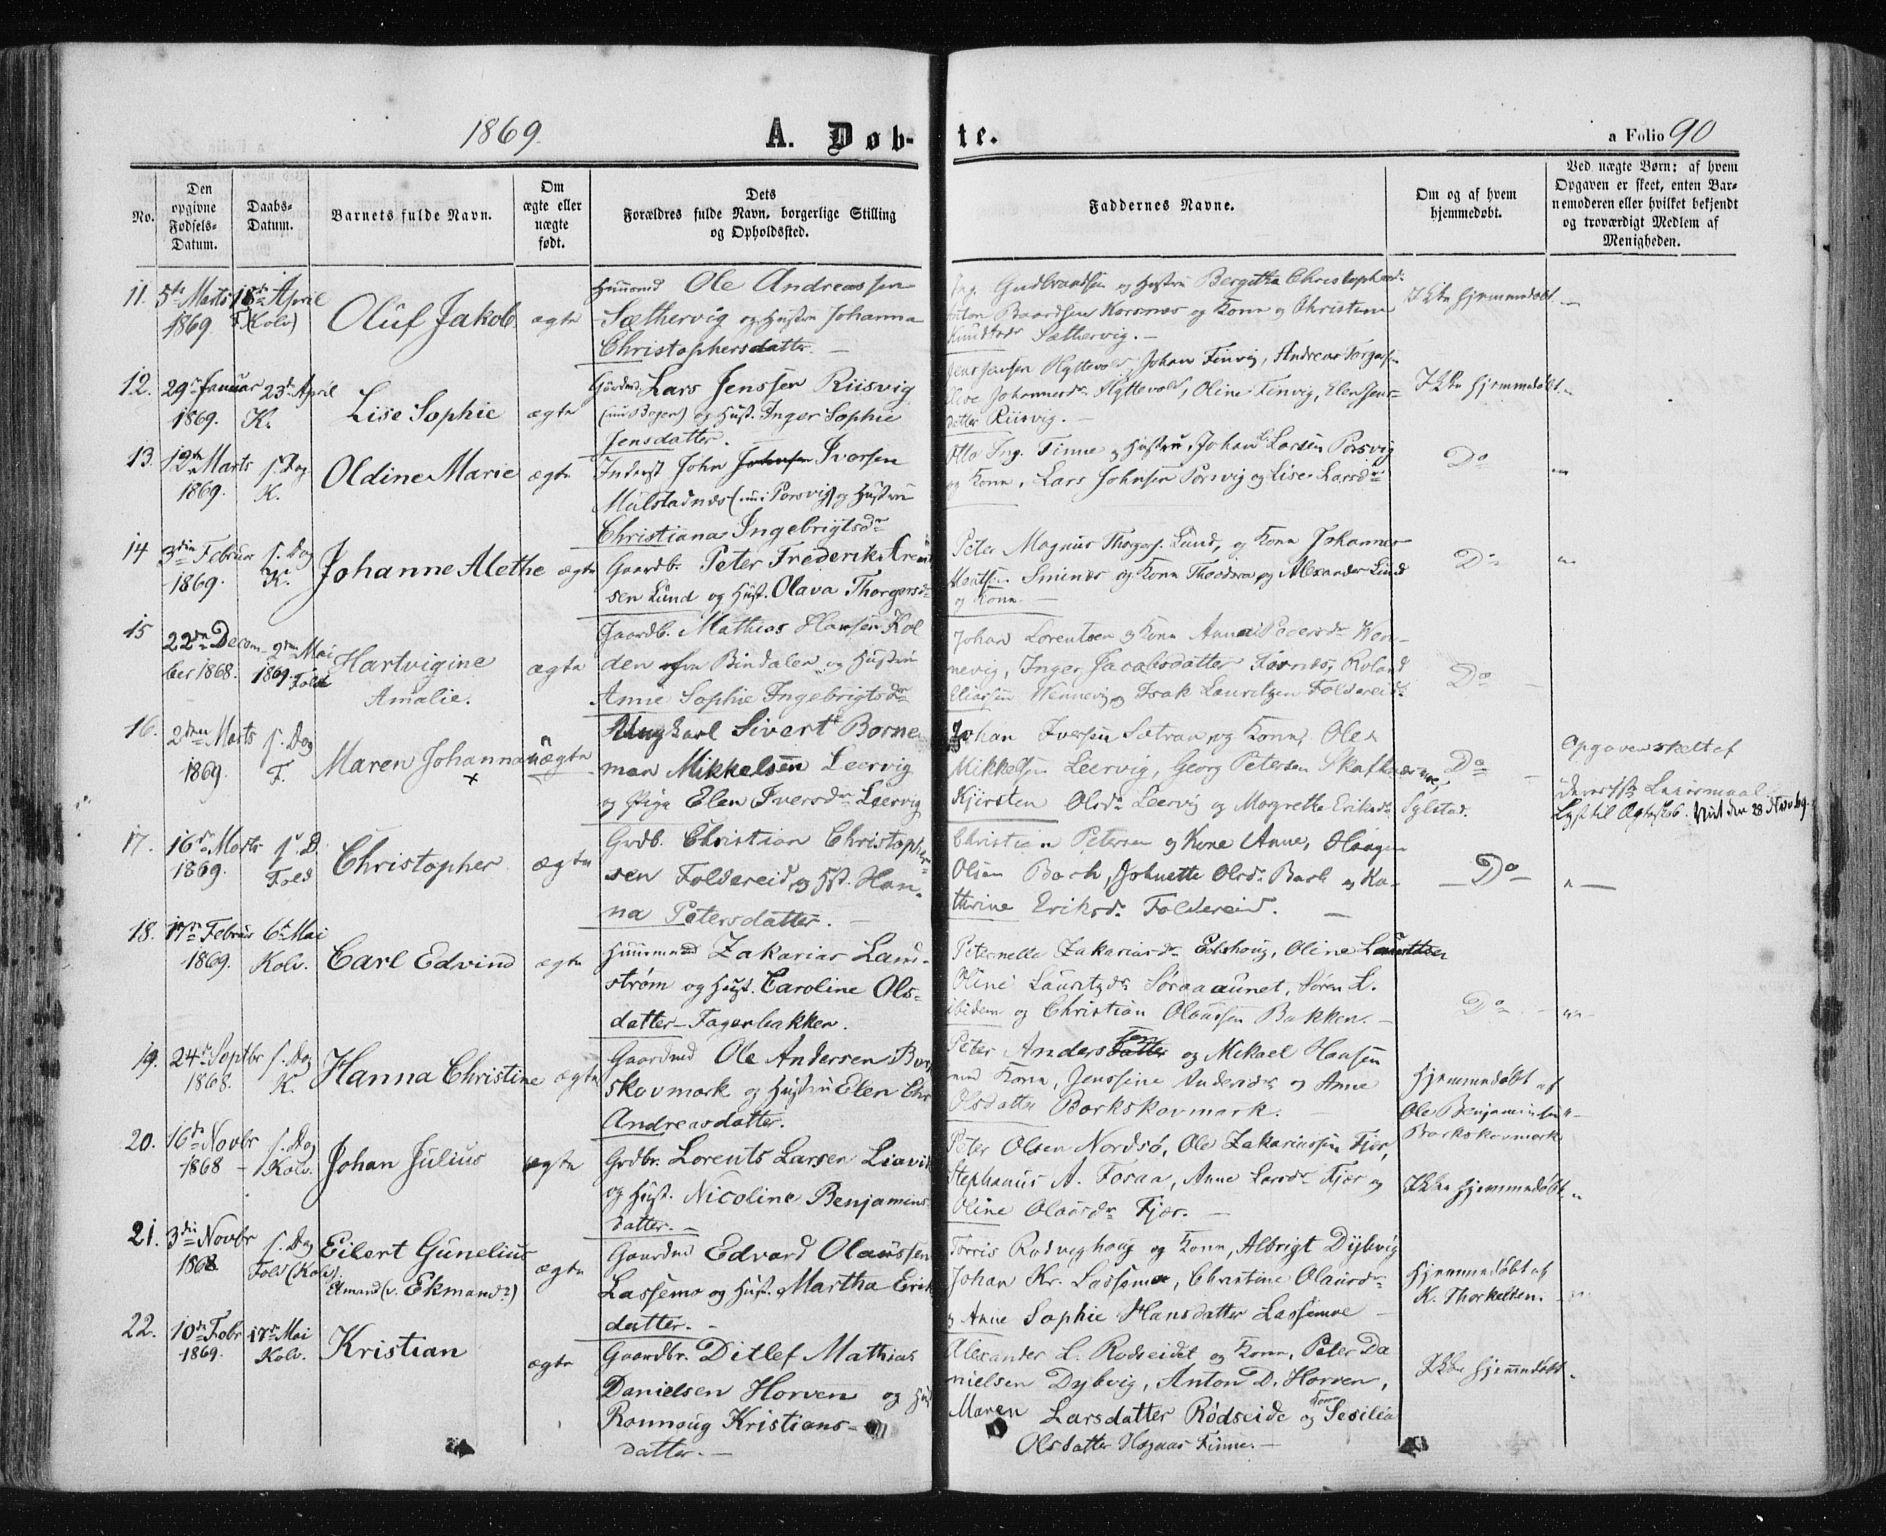 1869.
A. Døb-
te.
a Folio 90
No.
Den opgivne Fødsels-Datum.
Daabs-Datum.
Barnets fulde Navn.
Om ægte eller uægte født.
Dets Forældres fulde Navn, borgerlige Stilling og Opholdssted.
Faddernes Navne.
Om og af hvem hjemmedøbt.
Ved uægte Børn: af hvem Opgaven er skeet, enten Barnemoderen eller hvilket bekjendt og troværdigt Medlem af Menigheden.
11. 5te Marts 1869. 18de April (Kolv)
Oluf Jakob
ægte
Huusmd Ole Andreassen
Sæthervig og Hustru Johanna
Christophersdatter. —
Gudbrandsen og Hustru Bergitha Christophersd.
Anton Baardsen Korsnæs og Kone og Christine
Knudsdr Sæthervig. —
Ikke hjemmedøbt —
12. 29de Januar 1869. 23de April K.
Lise Sophie
ægte
Gaardmd. Lars Jenssen Riisvig
og Hust. Inger Sophie
Jensdatter.
Jens Jansen Hyttevold, Johan Finvig, Andreas Torgers.
Johannesdr Hyttevold, Oline Finvig, Elen Jens-
datter Riisvig. —
Ikke hjemmedøbt „
13. 12te Marts 1869. s. Dag K.
Oldine Marie
ægte
Inderst John Johnsen Iversen
Mulstadnæs (nu i Porsvig) og Hustru
Christiana Ingebrigtsdr
Otto Ing. Finne og Hustru, Johan L. Larsen Porsvig
og Kone, Lars Johnsen Porsvig og Lise Larsdr
Do „
14 3die Februar 1869. s. Dag K.
Johanne Alethe
ægte
Gaardb. Peter Frederik Arent
sen Lund og Hust. Olava Thorgersd.
Peter Magnus Thorgers. Lund, og Kone Johannes
Smines og Kone Theodora og Alexander Lund
og Kone. —
Do „
15 22de Decem- ber 1868. 2den Mai 1869. Fold
Hartvigine
Amalie.
ægte
Gaardb. Mathias Hansen Kol
den fra Bindalen og Hustru
Anne Sophie Ingebrigtsdr
Johan Lorentsen og Kone Anna Pedersdr Wen-
nevig, Inger Jacobsdatter Kornæs, Roland
Eliassen Wennevig og Isak Lauritzen Foldereid.
Do —
16. 2den Marts 1869. s. Dag F.
Maren Johanna
uægte
Ungkarl Sivert Borne
man Mikkelsen Leervig
og Pige Elen Iversdr Leervig
Johan Iversen Sætran og Kone, Ole
Mikkelsen Leervig, Georg Petersen Skafnæsmoe,
Kjersten Olsdr Leervig og Margrethe Eriksdr Sylstad.
Do —
Opgaven skeet af
17. 16de Marts 1869. s. D. Fold
Christopher
ægte
Grdb. Christian Christopher-
sen Foldereid og Hst. Han-
na Petersdatter. —
Christian Petersen og Kone Anne, Haagen
Olsen Bach, Johnette Olsdr Bach og Ka-
thrine Eriksdr Foldereid. —
— Do — „ —
18. 17de Februar 1869. 6te Mai Kolv.
Carl Edvind
ægte
Huusmand Zakarias Land-
strøm og Hust. Caroline Ols-
datter Fagerbakken.
Peternelle Zakariasdr Eidshoug, Oline Lauritsen
Oline Lauritzdr Søraaunet, Søren L.
ibidem og Christian Olaussen Bakken. —
Do — „
19. 24de Septbr 1868. s. Dag K.
Hanna Christine
ægte
Gaardmd Ole Andersen Bor
skovmark og Hustru Elen Chr
Andreasdatter.
Peter Andersdatter sen og Mikael Hansen
med Kone, Jenssine Andersdr og Anne
Olsdatter Borkskovmark. —
Hjemmedøbt af
Ole Benjaminsen
Borkskovmark
20. 16de Novbr 1868 s. Dag Kolv.
Johan Julius
ægte
Grdbr. Lorents Larsen Liavik
og Hust. Nicoline Benjamins
datter. —
Peter Olsen Nordsø, Ole Zakariassen Fjær,
Stephanus A. Foraa, Anne Larsdr Fjær og
Oline Olausdr Fjær. —
Ikke hjemmedøbt „
21. 3die Novbr 1868 s. Dag Fold (Kolv)
Eilert Gunelius
Elmand (v. Ekmand?)
ægte
Gaardmd Edvard Olaussen
Lassemo og Hust. Martha Erik
datter. —
Torris Rodvighoug og Kone, Albrigt Dybvig
Johan Kr. Lassemoe, Christine Olausdr
og Anne Sophie Hansdatter Lassemoe —
Hjemmedøbt af
K. Thorkelsen. —
22. 10de Febr 1869. 17de Mai Kolv.
Kristian
ægte
Gaardbr. Ditlef Mathias
Danielsen Horven og Hust
Ronnaug Kristians-
datter. —
Alexander L. Rodseidet og Kone, Peter Da
nielsen Dybvig, Anton D. Horven,
Maren Larsdatter Rödseide og Sesilia
Olsdatter Finne. —
Ikke hjemmedøbt „